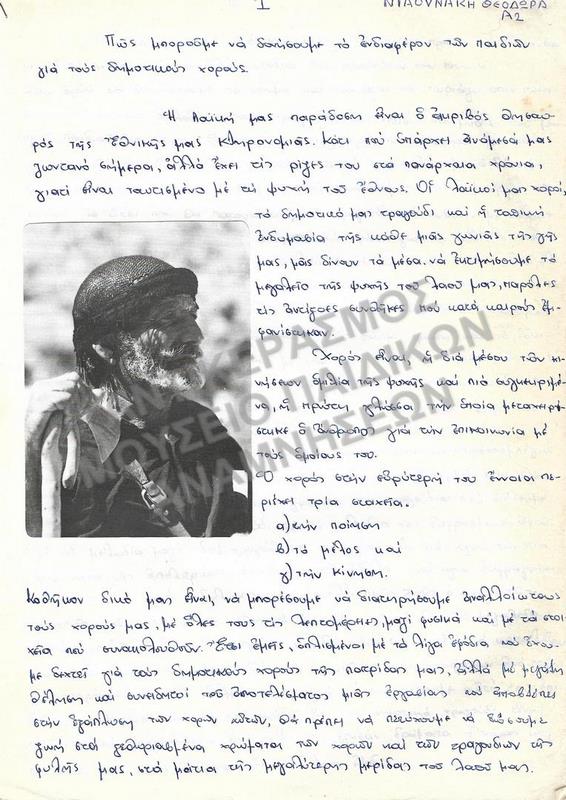 1
ΝΤΑΟΥΝΑΚΗ ΘΕΟΔΩΡΑ
Α2
Πῶς μποροῦμε νά δονήσουμε τό ἐνδιαφέρον τῶν παιδιῶν
γιά τούς δημοτικούς χορούς.
Ἡ λαϊκή μας παράδοση εἶναι ὁ ἀκριβός θησαυ-
ρός τῆς ἐθνικῆς μας κληρονομιᾶς. Κάτι πού ὑπάρχει ἀνάμεσά μας
ζωντανό σήμερα, ἀλλά ἔχει τίς ρίζες του στά πανάρχαια χρόνια,
γιατί εἶναι ταυτισμένο μέ τή ψυχή τοῦ ἔθνους. Οἱ λαϊκοί μας χοροί,
τό δημοτικό μας τραγούδι καί ἡ τοπική
ἐνδυμασία τῆς κάθε μιᾶς γωνιᾶς τῆς γῆς
μας, μᾶς δίνουν τά μέσα νά ἐκτιμήσουμε τό
μεγαλεῖο τῆς ψυχῆς τοῦ λαοῦ μας, παρόλες
τίς ἀντίξοες συνθῆκες πού κατά καιρούς ἐμ-
φανίστηκαν.
Χορός εἶναι, ἡ διά μέσου τῶν κι-
νήσεων ὁμιλία τῆς ψυχῆς καί πιό συγκεκριμέ-
να, ἡ πρώτη γλῶσσα τήν ὁποία μεταχειρί-
στηκε ὁ ἄνθρωπος γιά τήν ἐπικοινωνία μέ
τούς ὁμοίους του.
Ὁ χορός στήν εὐρύτερή του ἔννοια πε-
ριέχει τρία στοιχεῖα.
α) τήν ποίηση
β) τό μέλος καί
γ) τήν κίνηση.
Καθῆκον δικό μας εἶναι, νά μπορέσουμε νά διατηρήσουμε ἀναλλοίωτους
τούς χορούς μας, μέ ὅλες τους τίς λεπτομέρειες, μαζί φυσικά καί μέ τά στοι-
χεῖα πού συνακολουθοῦν. Ἔτσι ἐμεῖς, ὁπλισμένοι μέ τά λίγα ἐφόδια πού ἔχου-
με δεχτεῖ γιά τούς δημοτικούς χορούς τῆς πατρίδας μας, ἀλλά μέ μεγάλη
θέληση καί συνειδητοί τοῦ ἀποτελέσματος μιᾶς ἐργασίας πού ἀποβλέπει
στήν ἐξάπλωση τῶν χορῶν αὐτῶν, θά πρέπει νά πετύχουμε νά δώσουμε
ζωή στά ξεθωριασμένα χρώματα τῶν χορῶν καί τῶν τραγουδιῶν τῆς
φυλῆς μας, στά μάτια τῆς μεγαλύτερης μερίδας τοῦ λαοῦ μας.
ΑΝΑΚΕΡΑΣΜΟΣ
ΜΟΥΣΕΙΟ ΠΑΙΔΙΚΩΝ
ΑΝΑΜΝΗΣΕΩΝ